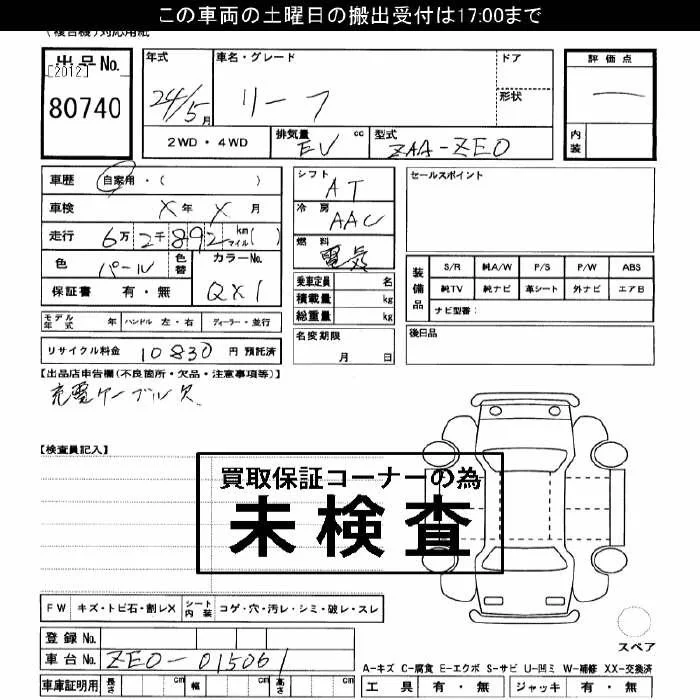 この車両の土曜日の搬出受付は17:00まで
(複合機)対応用紙
出品No.
[2012]
80740
年式 24/5月
車名・グレード リーフ
ドア
形状
評価点
内装
2WD・4WD
排気量 EV cc
型式 ZAA-ZE0
車歴 自家用・( )
車検 X年X月
走行 6万2千892 km マイル( )
色 パール 色替
カラーNo. QX1
保証書 有・無
シフト AT
冷房 AAC
燃料 電気
乗車定員 名
積載量 kg
総重量 kg
名変期限 月 日
セールスポイント
装備品 S/R 純A/W P/S P/W ABS
純TV 純ナビ 革シート 外ナビ エアB
ナビ型番:
後日品
モデル年式 年 ハンドル 左・右 ディーラー・並行
リサイクル料金 10830 円 預託済
【出品店申告欄(不良箇所・欠品・注意事項等)】
充電ケーブル欠
【検査員記入】
買取保証コーナーの為
未検査
FW キズ・トビ石・割レX シート内装 コゲ・穴・汚レ・シミ・破レ・スレ
スペア
登録No.
車台No. ZE0-015061
車庫証明用 長さ cm 幅 cm 高さ cm
A-キズ C-腐食 E-エクボ S-サビ U-凹ミ W-補修 XX-交換済
工具 有・無 ジャッキ 有・無